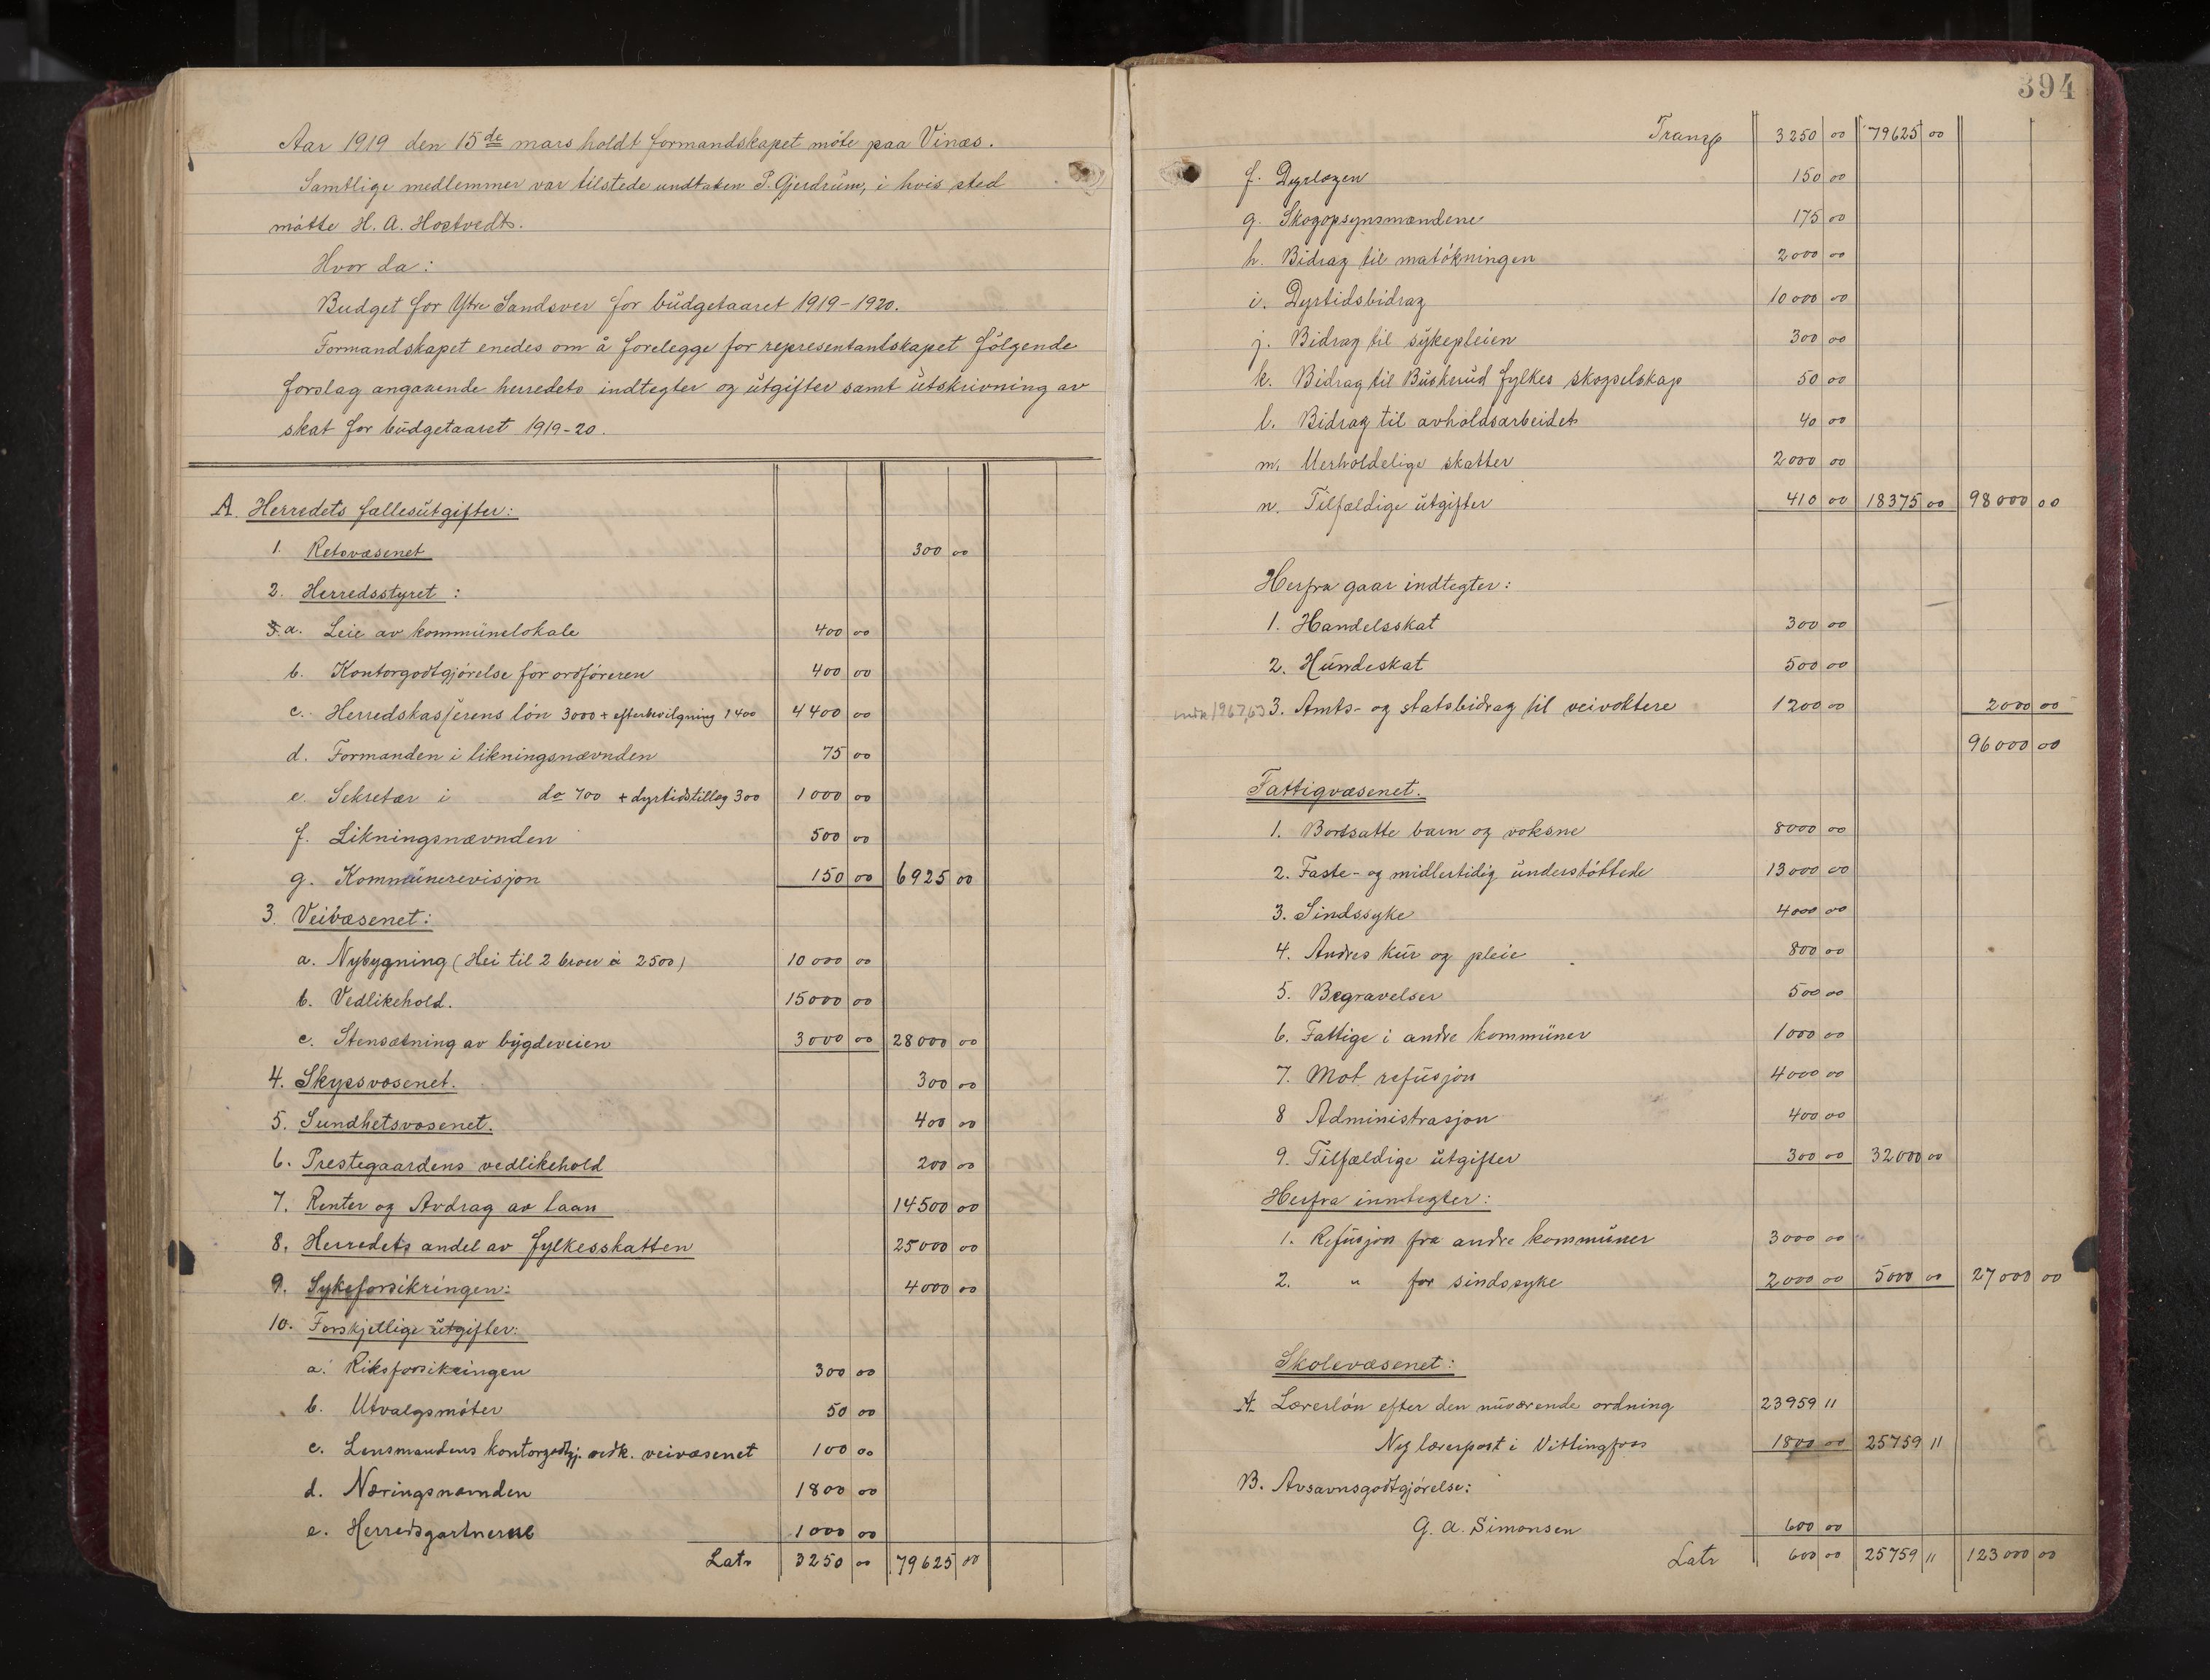 Aar 1919 den 15de mars holdt formandskapet møte paa Vinæs.
Samtlige medlemmer var tilstede undtaken P. Gjerdrum, i hvis sted
møtte H. A. Hostvedt.
Hvor da:
Budget for Ytre Sandsver for budgetaaret 1919-1920.
Formandskapet enedes om å forelegge for representantskapet følgende
forslag angaaende herredets indtegter og utgifter samt utskrivning av
skat for budgetaaret 1919-20.
A. Herredets fællesutgifter:
1. Retsvæsenet 300 00
2. Herredsstyret :
a. Leie av kommunelokale 400 00
b. Kontorgodtgjørelse for ordføreren 400 00
c. Herredskasserens løn 3000 + efterbevilgning 1400 4400 00
d. Formanden i likningsnævnden 75 00
e. Sekretær i do 700 + dyrtidstillæg 300 1000 00
f. Likningsnævnden 500 00
g. Kommunerevisjon 150 00 6925 00
3. Veivæsenet:
a. Nybygning (Hei til 2 broer à 2500) 10000 00
b. Vedlikehold. 15000 00
c. Stensætning av bygdeveien 3000 00 28000 00
4. Skyssvæsenet. 300 00
5. Sundhetsvæsenet. 400 00
6. Prestegaardens vedlikehold 200 00
7. Renter og Avdrag av laan 14500 00
8. Herredets andel av fylkesskatten 25000 00
9. Sykeforsikringen: 4000 00
10. Forskjellige utgifter:
a. Riksforsikringen 300 00
b. Utvalgsmøter 50 00
c. Lensmandens kontorgodtgj. vedk. veivæsenet 100 00
d. Næringsnævnden 1800 00
e. Herredsgartnerne 1000 00
Latr 3250 00 79625 00
394
Transp 3250 00 79625 00
f. Dyrlægen 150 00
g. Skogopsynsmændene 175 00
h. Bidrag til matøkningen 2000 00
i. Dyrtidsbidrag 10000 00
j. Bidrag til sykepleien 300 00
k. Bidrag til Buskerud fylkes skogselskap 50 00
l. Bidrag til avholdsarbeidet 40 00
m. Uerholdelige skatter 2000 00
n. Tilfældige utgifter 410 00 18375 00 98000 00
Herfra gaar indtegter:
1. Handelsskat 300 00
2. Hundeskat 500 00
3. Amts- og statsbidrag til veivoktere 1200 00 2000 00
96000 00
Fattigvæsenet.
1. Bortsatte barn og voksne 8000 00
2. Faste- og midlertidig understøttede 13000 00
3. Sindssyke 4000 00
4. Andres kur og pleie 800 00
5. Begravelser 500 00
6. Fattige i andre kommuner 1000 00
7. Mot refusjon 4000 00
8 Administrasjon 400 00
9. Tilfældige utgifter 300 00 32000 00
Herfra inntegter:
1. Refusjon fra andre kommuner 3000 00
2. " for sindssyke 2000 00 5000 00 27000 00
Skolevæsenet:
A. Lærerløn efter den nuværende ordning 23959 "
Ny lærerpost i Vittingfoss 1800 00 25759 "
B. Avsavnsgodtgjørelse:
G. A. Simonsen 600 00
Latr 600 00 25759 " 123000 00